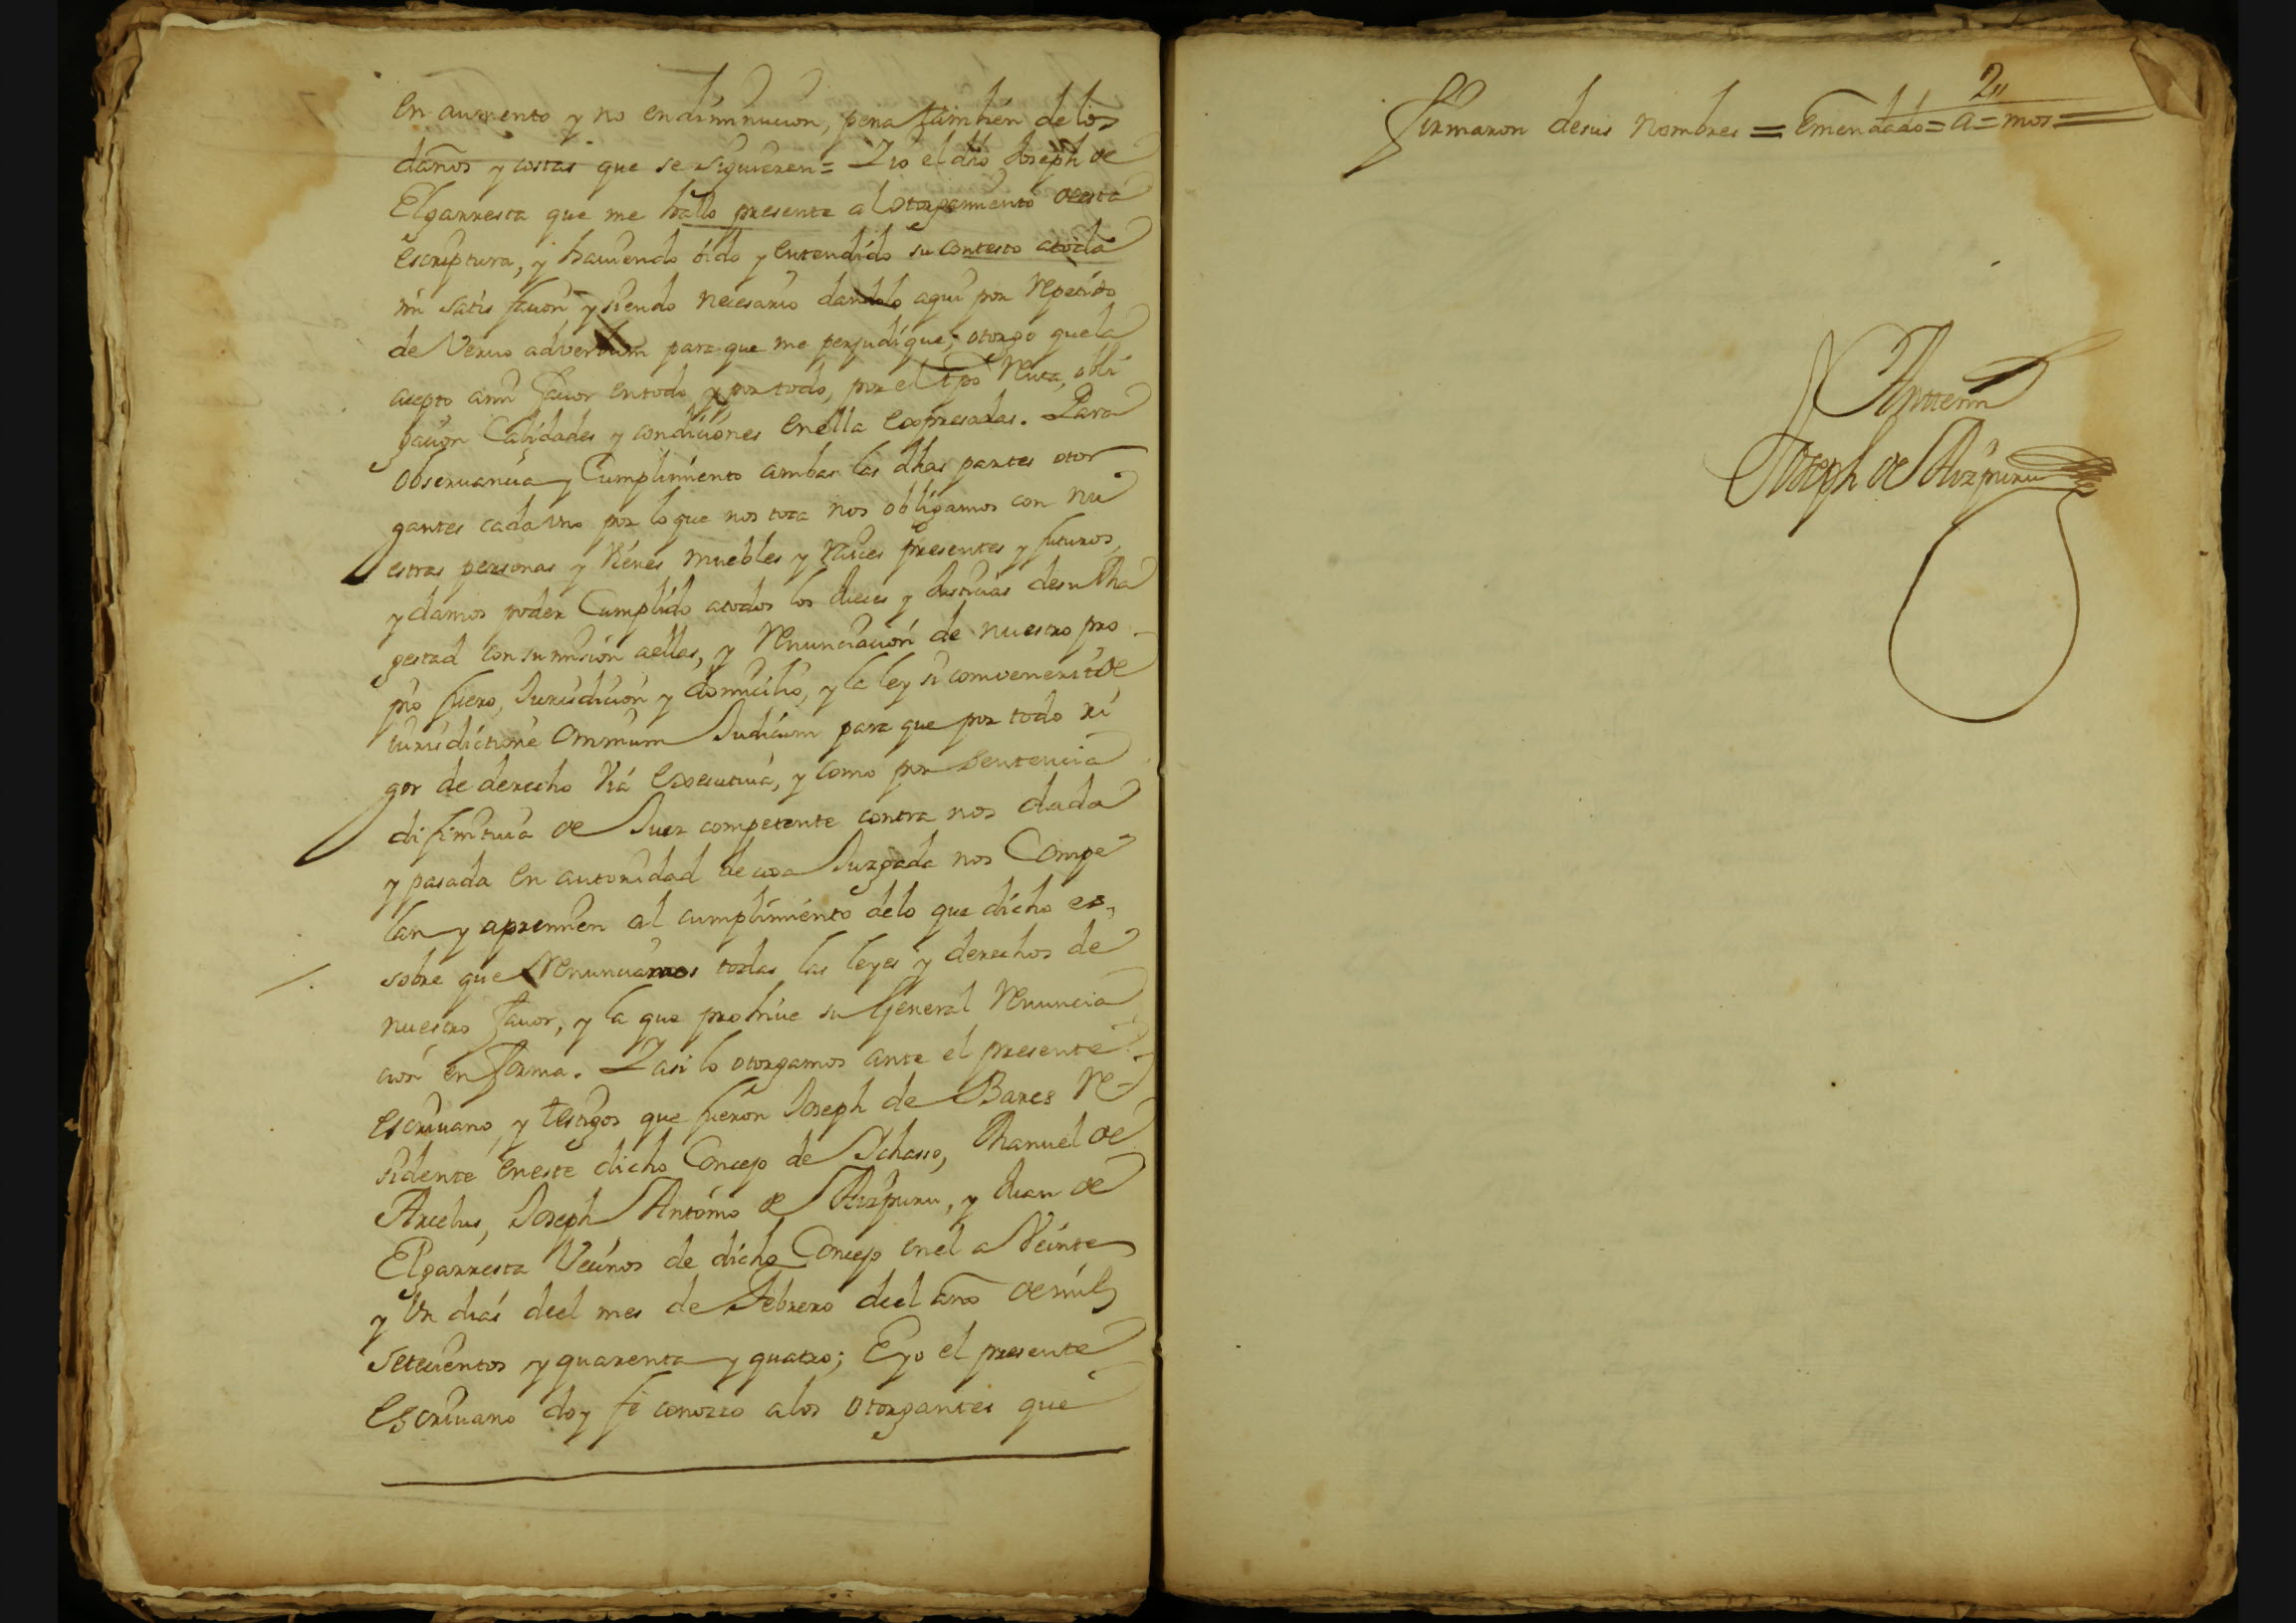 en aumento y no en diminucion, pena tambien de los
daños y costas que se siguieren = Yio el dho Joseph de
Elgarresta que me hallo presente al otorgamiento de esta
escriptura, y hauiendo oido y entendido su contesto atoda
mi satisfacion y siendo necesario dandolo aqui por repetido
de Veruo adverbum para que me perjudique, otorgo que la
acepto ami fauor entodo y por todo, por el tpo renta, obli
gacion Calidades y condiciones enella expresadas. Para
obseruancia y Cumplimiento ambas las dhas partes otor
gantes cada uno por lo que nos toca nos obligamos con nu
estras personas y Vienes muebles y raices presentes y futuros,
y damos poder Cumplido atodos los Jueces y Justicias desu Ma
gestad con sumision aellas, y renunciacion de nuestro pro
pio fuero, Jurisdicion y domicilio, y la ley si convenerit de
iurisdictione omnium Judicum para que por todo ri
gor de derecho Via executiua, y como por sentencia
difinitiua de Juez competente contra nos dada
y pasada en autoridad de cosa Juzgada nos Compe
lan y apremien al cumplimiento delo que dicho es,
sobre que renunciamos todas las leyes y derechos de
nuestro fauor, y la que prohiue su General renuncia
cion en forma. Y asi lo otorgamos ante el presente
escriuano, y testigos que fueron Joseph de Bares re
sidente eneste dicho Concejo de Ichasso, Manuel de
Arcelus, Joseph Antonio de Aizpuru, y Juan de
Elgarresta Vecinos de dicho Concejo enel a Veinte
y Un dias deel mes de Febrero deel año de mil
setecientos y quarenta y quatro; E yo el presente
escriuano doy fe conozco alos otorgantes que
2"
firmaron desus nombres = emendado = a = mos =
Antemi
Joseph de Aizpuru